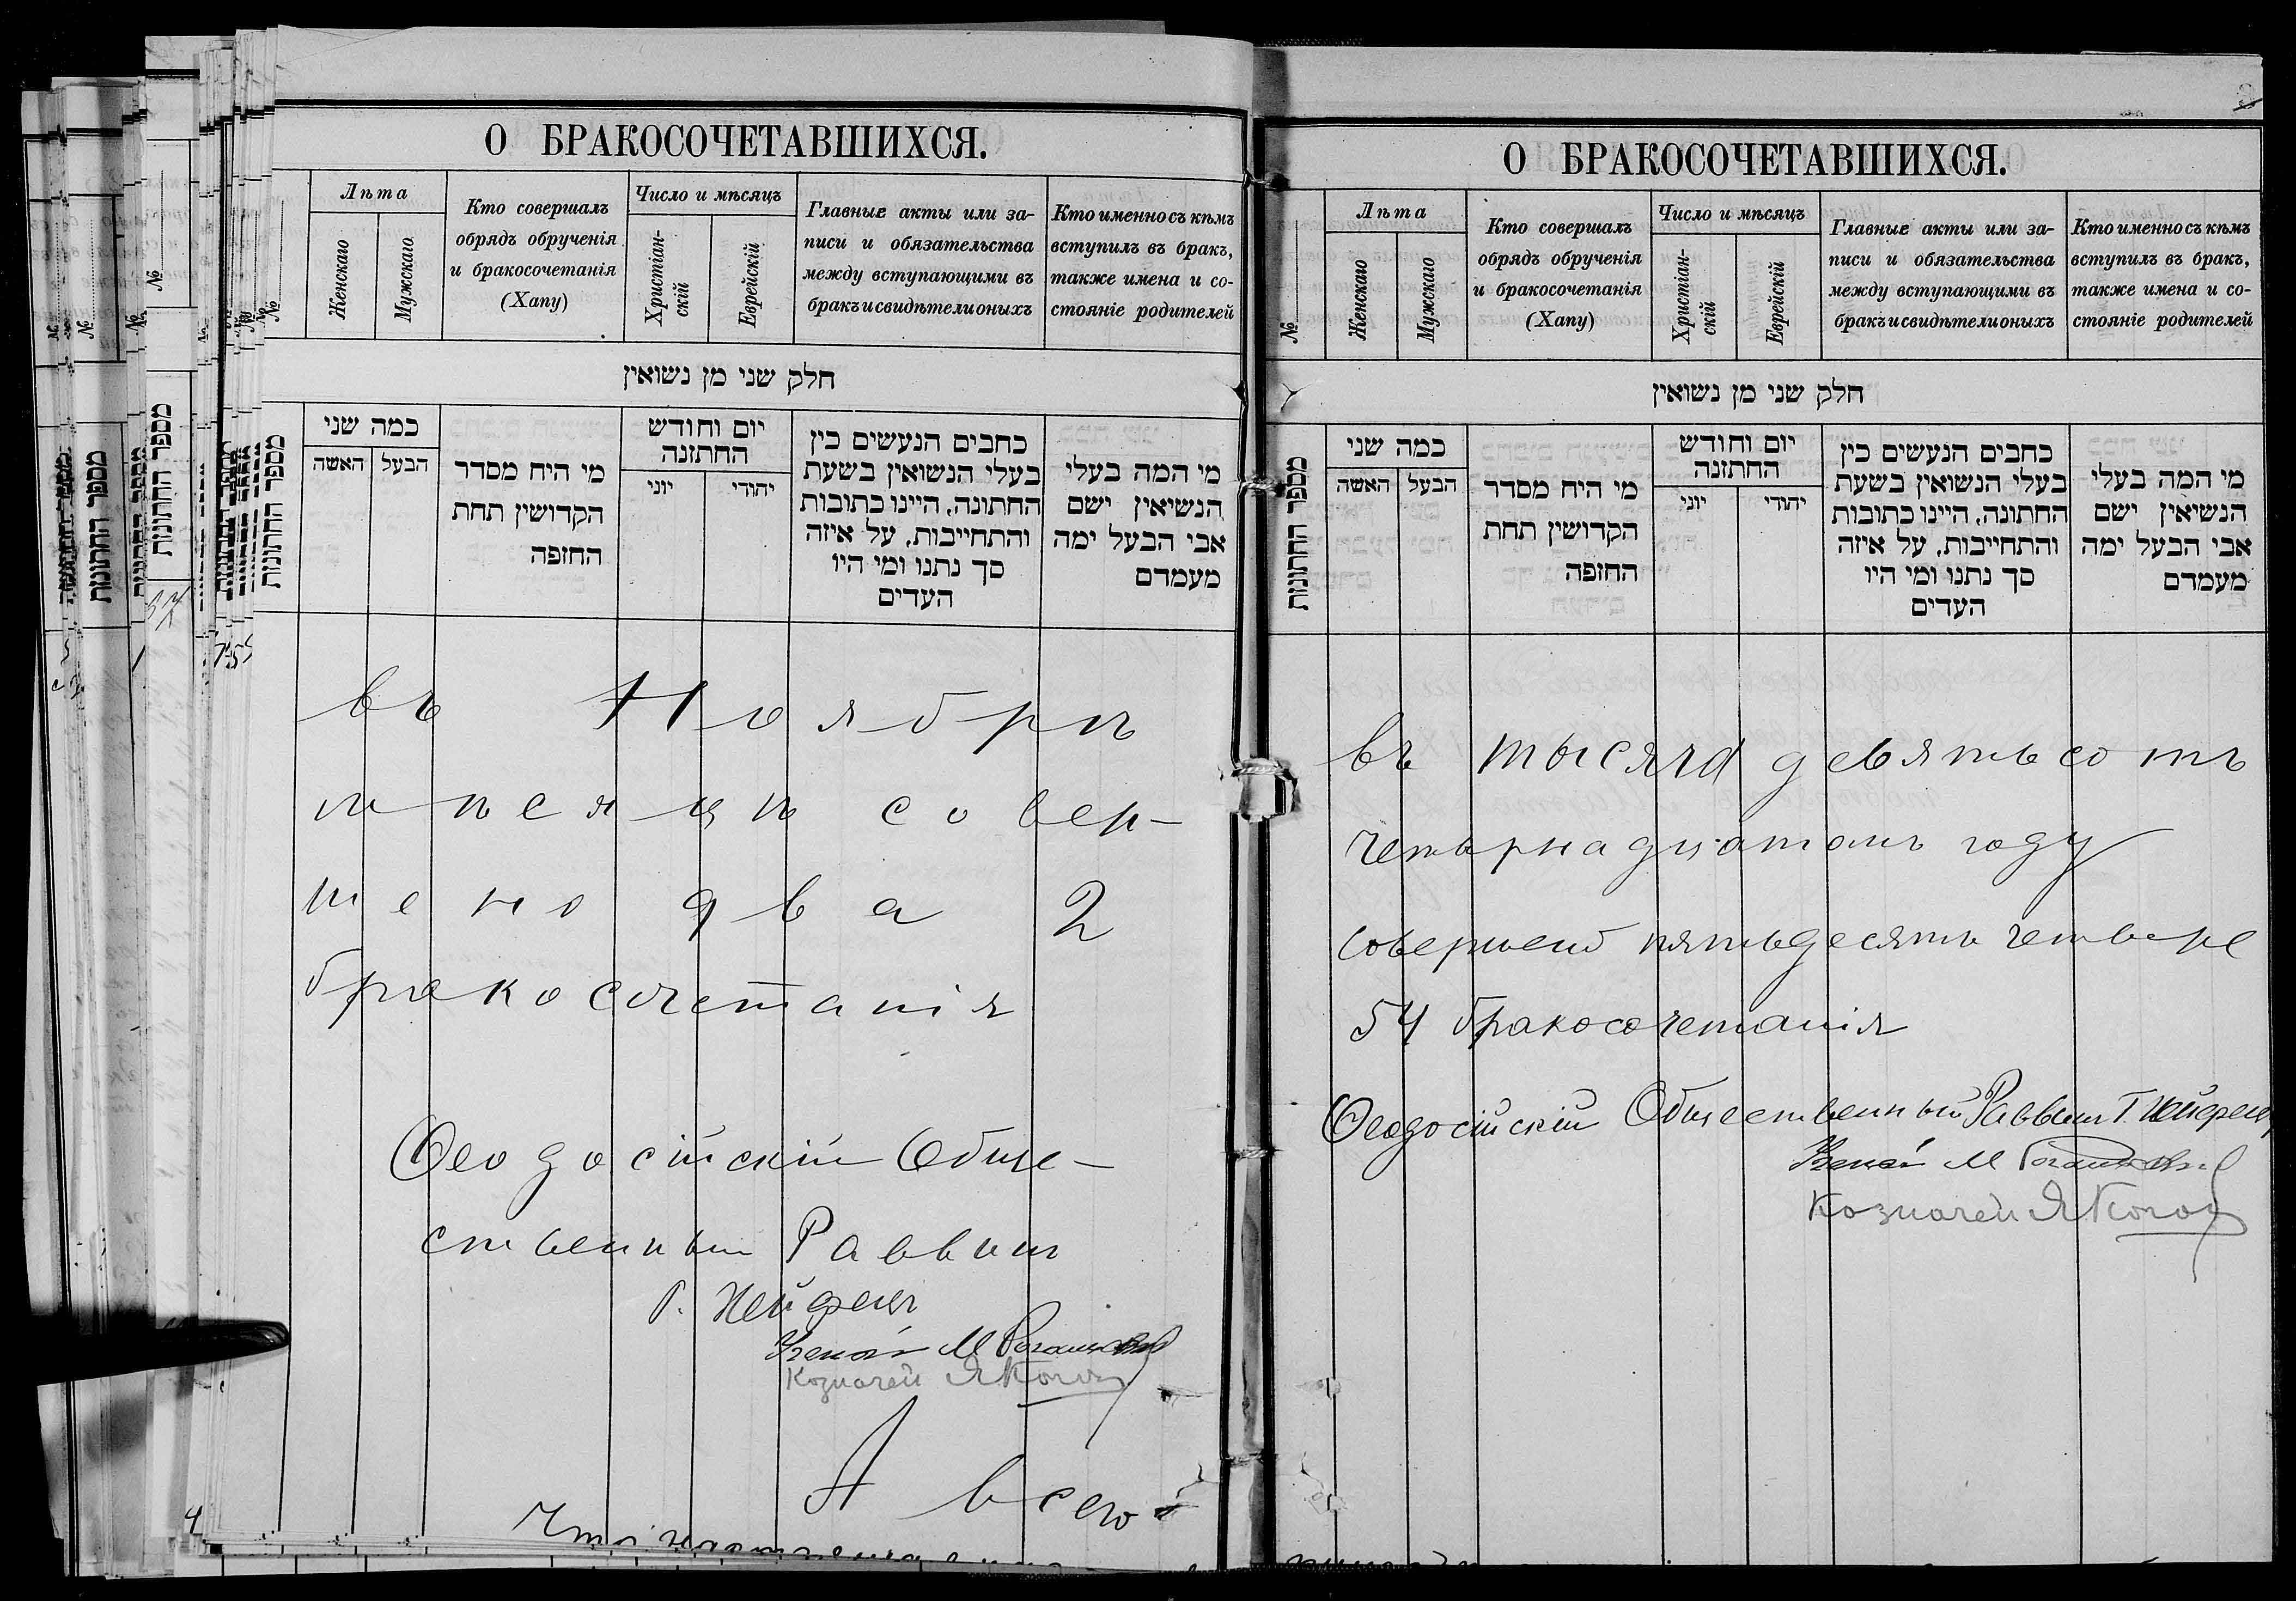 О БРАКОСОЧЕТАВШИХСЯ.
№
Лѣта
Женскаго
Мужскаго
Кто совершалъ
обрядъ обрученія
и бракосочетанія
(Хапу)
Число и мѣсяцъ
Христіан-
скій
Еврейскій
Главные акты или за-
писи и обязательства
между вступающими въ
бракъ и свидѣтели оныхъ
Кто именно съ кѣмъ
вступилъ въ бракъ,
также имена и со-
стояніе родителей
חלק שני מן נשואין
מספר החתונות
כמה שני
האשה
הבעל
מי היה מסדר
הקדושין תחת
החופה
יום וחודש
החתונה
יוני
יהודי
כחבים הנעשים כין
בעלי הנשואין בשעת
החתונה, היינו כתובות
והתחייבות, על איזה
סך נתנו ומי היו
העדים
מי המה בעלי
הנשיאין ישם
אבי הבעל ימה
מעמדם
въ Ноябрѣ
мѣсяцѣ совер-
шено два 2
бракосочетанія
Ѳеодосійскій Обще-
ственный Раввинъ
Г. Нейфехъ
Казначей
А всего
О БРАКОСОЧЕТАВШИХСЯ.
№
Лѣта
Женскаго
Мужскаго
Кто совершалъ
обрядъ обрученія
и бракосочетанія
(Хапу)
Число и мѣсяцъ
Христіан-
скій
Еврейскій
Главные акты или за-
писи и обязательства
между вступающими въ
бракъ и свидѣтели оныхъ
Кто именно съ кѣмъ
вступилъ въ бракъ,
также имена и со-
стояніе родителей
חלק שני מן נשואין
מספר החתונות
כמה שני
האשה
הבעל
מי היה מסדר
הקדושין תחת
החופה
יום וחודש
החתונה
יוני
יהודי
כחבים הנעשים כין
בעלי הנשואין בשעת
החתונה, היינו כתובות
והתחייבות, על איזה
סך נתנו ומי היו
העדים
מי המה בעלי
הנשיאין ישם
אבי הבעל ימה
מעמדם
въ тысяча девятьсотъ
четырнадцатомъ году
совершено пятьдесятъ четыре
54 бракосочетанія
Ѳеодосійскій Общественный Раввинъ Г. Нейфехъ
Козначей